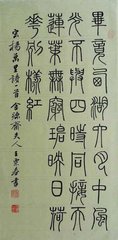 畢竟西湖六月中風
光不與四時同接天
蓮葉無窮碧映日荷
花別樣紅
宋楊萬里詩一首